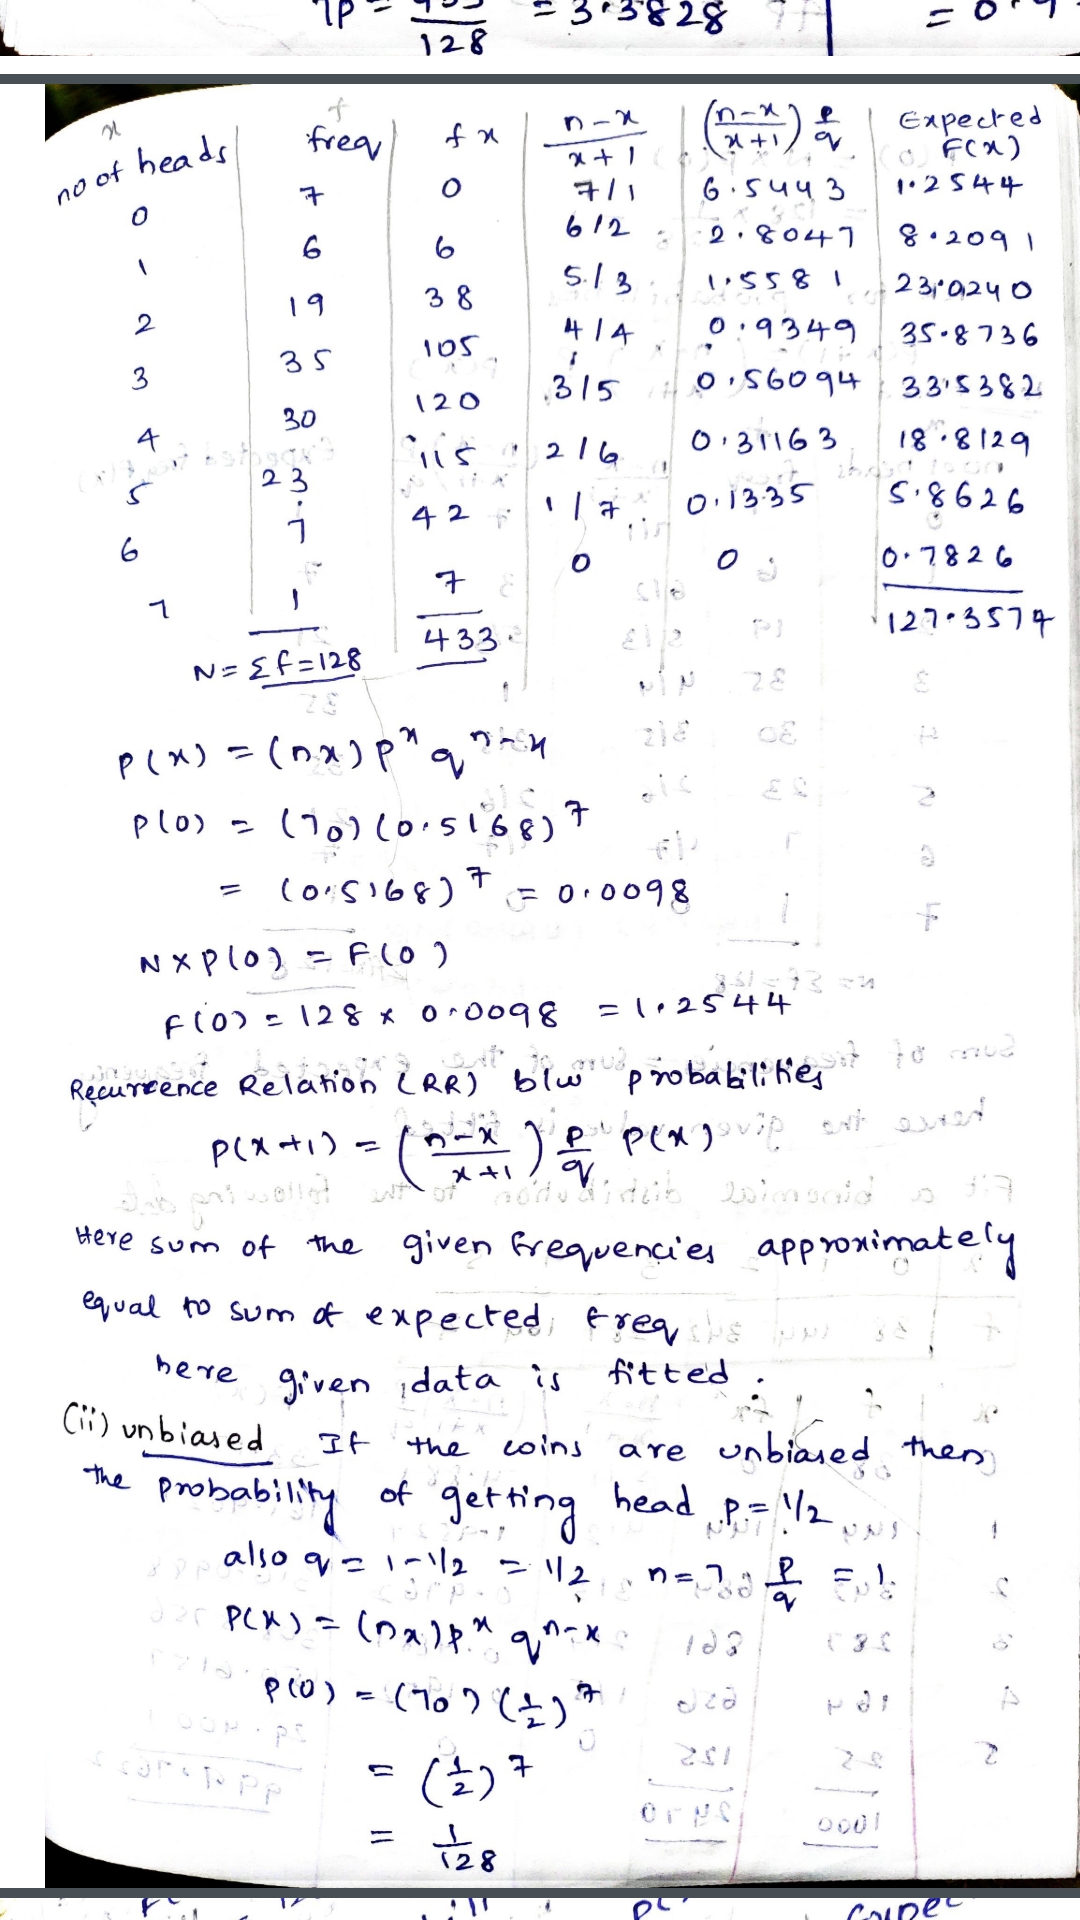 7p = 433/128 = 3.3828
x no of heads | f freq | f x | n-x / x+1 | (n-x / x+1) p/q | Expected F(x)
0 | 7 | 0 | 7/1 | 6.5443 | 1.2544
1 | 6 | 6 | 6/2 | 2.8047 | 8.2091
2 | 19 | 38 | 5/3 | 1.5581 | 23.0240
3 | 35 | 105 | 4/4 | 0.9349 | 35.8736
4 | 30 | 120 | 3/5 | 0.56094 | 33.5382
5 | 23 | 115 | 2/6 | 0.31163 | 18.8129
6 | 7 | 42 | 1/7 | 0.1335 | 5.8626
7 | 1 | 7 | 0 | 0 | 0.7826
N = Σf = 128 | 433 | 127.3574
P(x) = (nx) p^x q^n-x
P(0) = (70) (0.5168)^7
= (0.5168)^7 = 0.0098
N x P(0) = F(0)
F(0) = 128 x 0.0098 = 1.2544
Recurrence Relation (RR) b/w probabilities
P(x+1) = (n-x / x+1) p/q P(x)
Here sum of the given frequencies approximately
equal to sum of expected freq
here given data is fitted.
(ii) unbiased If the coins are unbiased then
the probability of getting head p = 1/2
also q = 1-1/2 = 1/2 n = 7 p/q = 1
P(x) = (nx) p^x q^n-x
P(0) = (70) (1/2)^7
= (1/2)^7
= 1/128